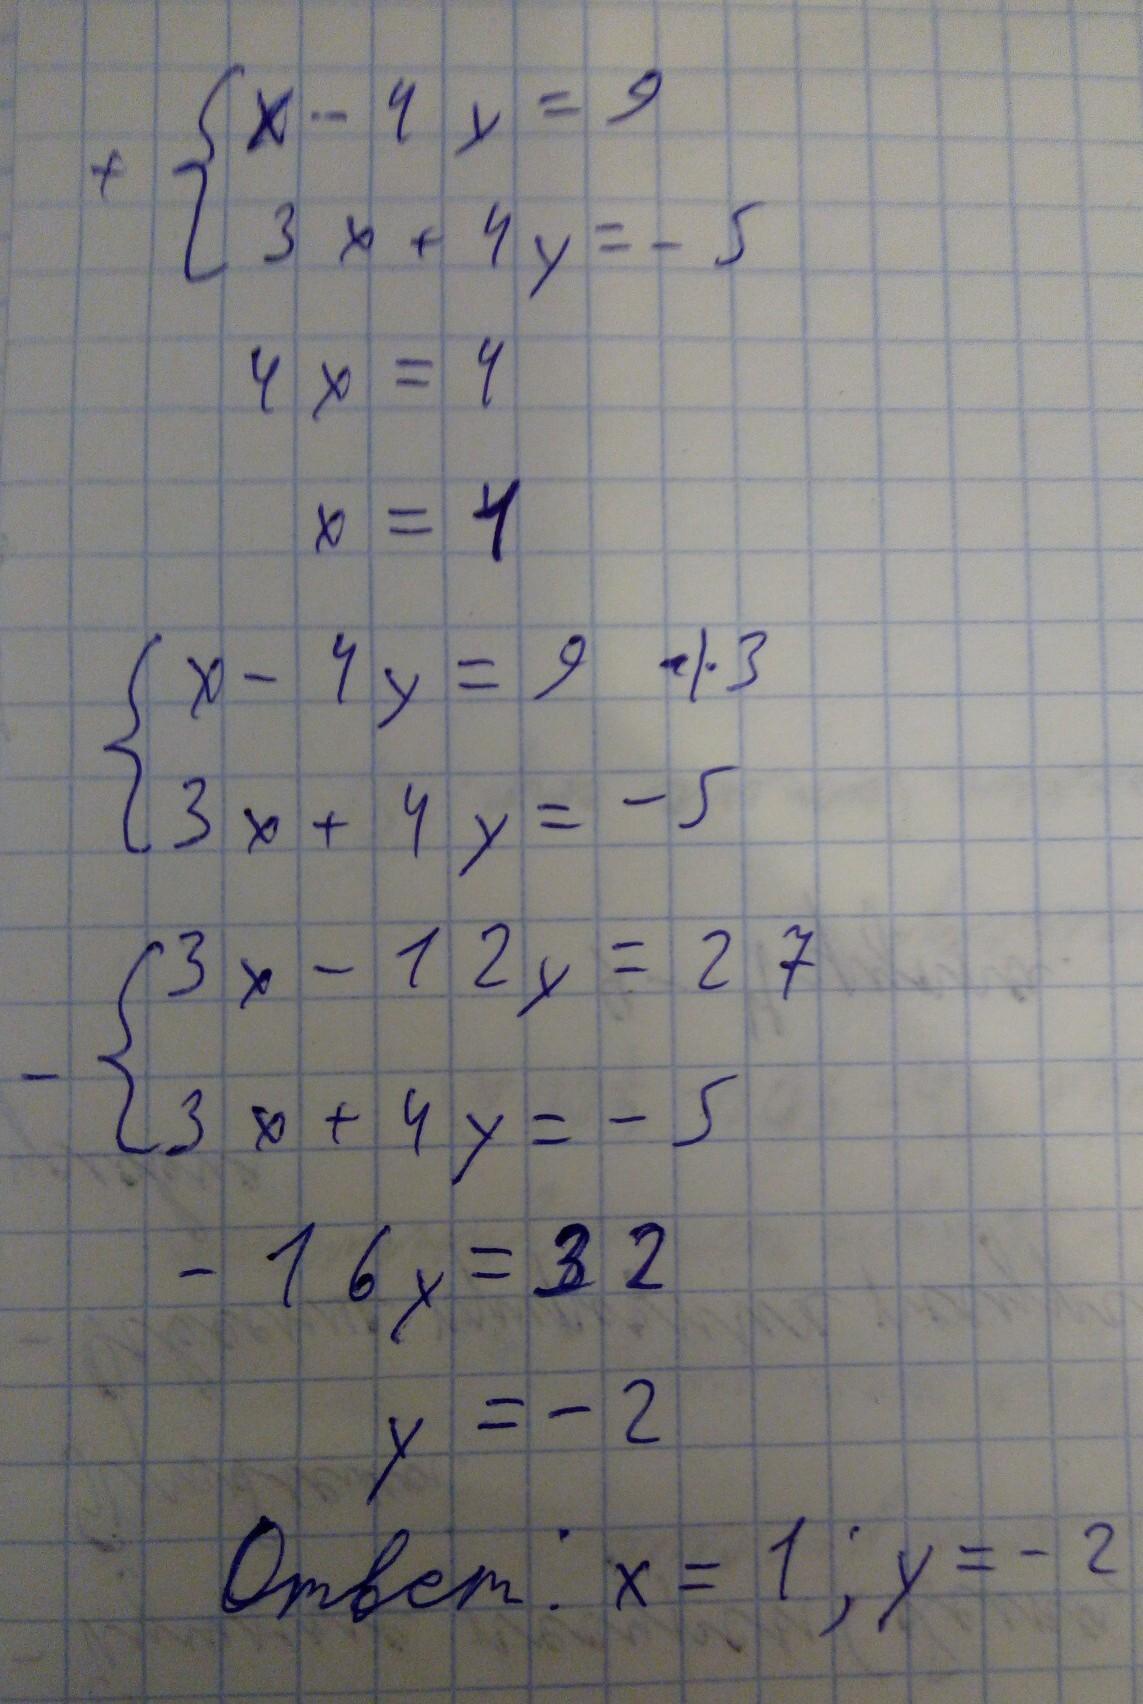 + { x - 4y = 9
3x + 4y = -5
4x = 4
x = 1
{ x - 4y = 9 | · 3
3x + 4y = -5
- { 3x - 12y = 27
3x + 4y = -5
-16y = 32
y = -2
Ответ: x = 1; y = -2